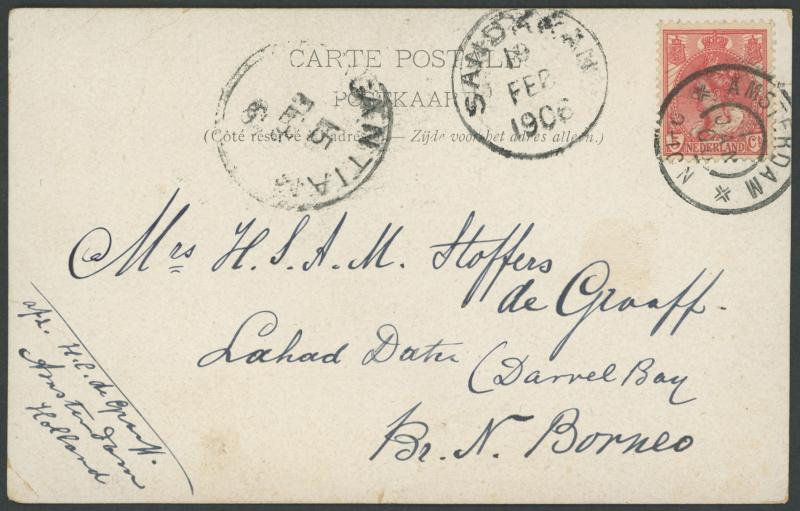 CARTE POSTALE
POSTKAART
(Côté réservé à l'adresse. — Zijde voor het adres alleen.)
SANTIAM
15
FEB
SANDAKAN
FEB
1906
AMSTERDAM
NEDERLAND
Mrs H. S. A. M. Stoffers
de Graaff.
Lahad Datu (Darvel Bay
Br. N. Borneo
afz. H.C. de Graaff.
Amsterdam
Holland